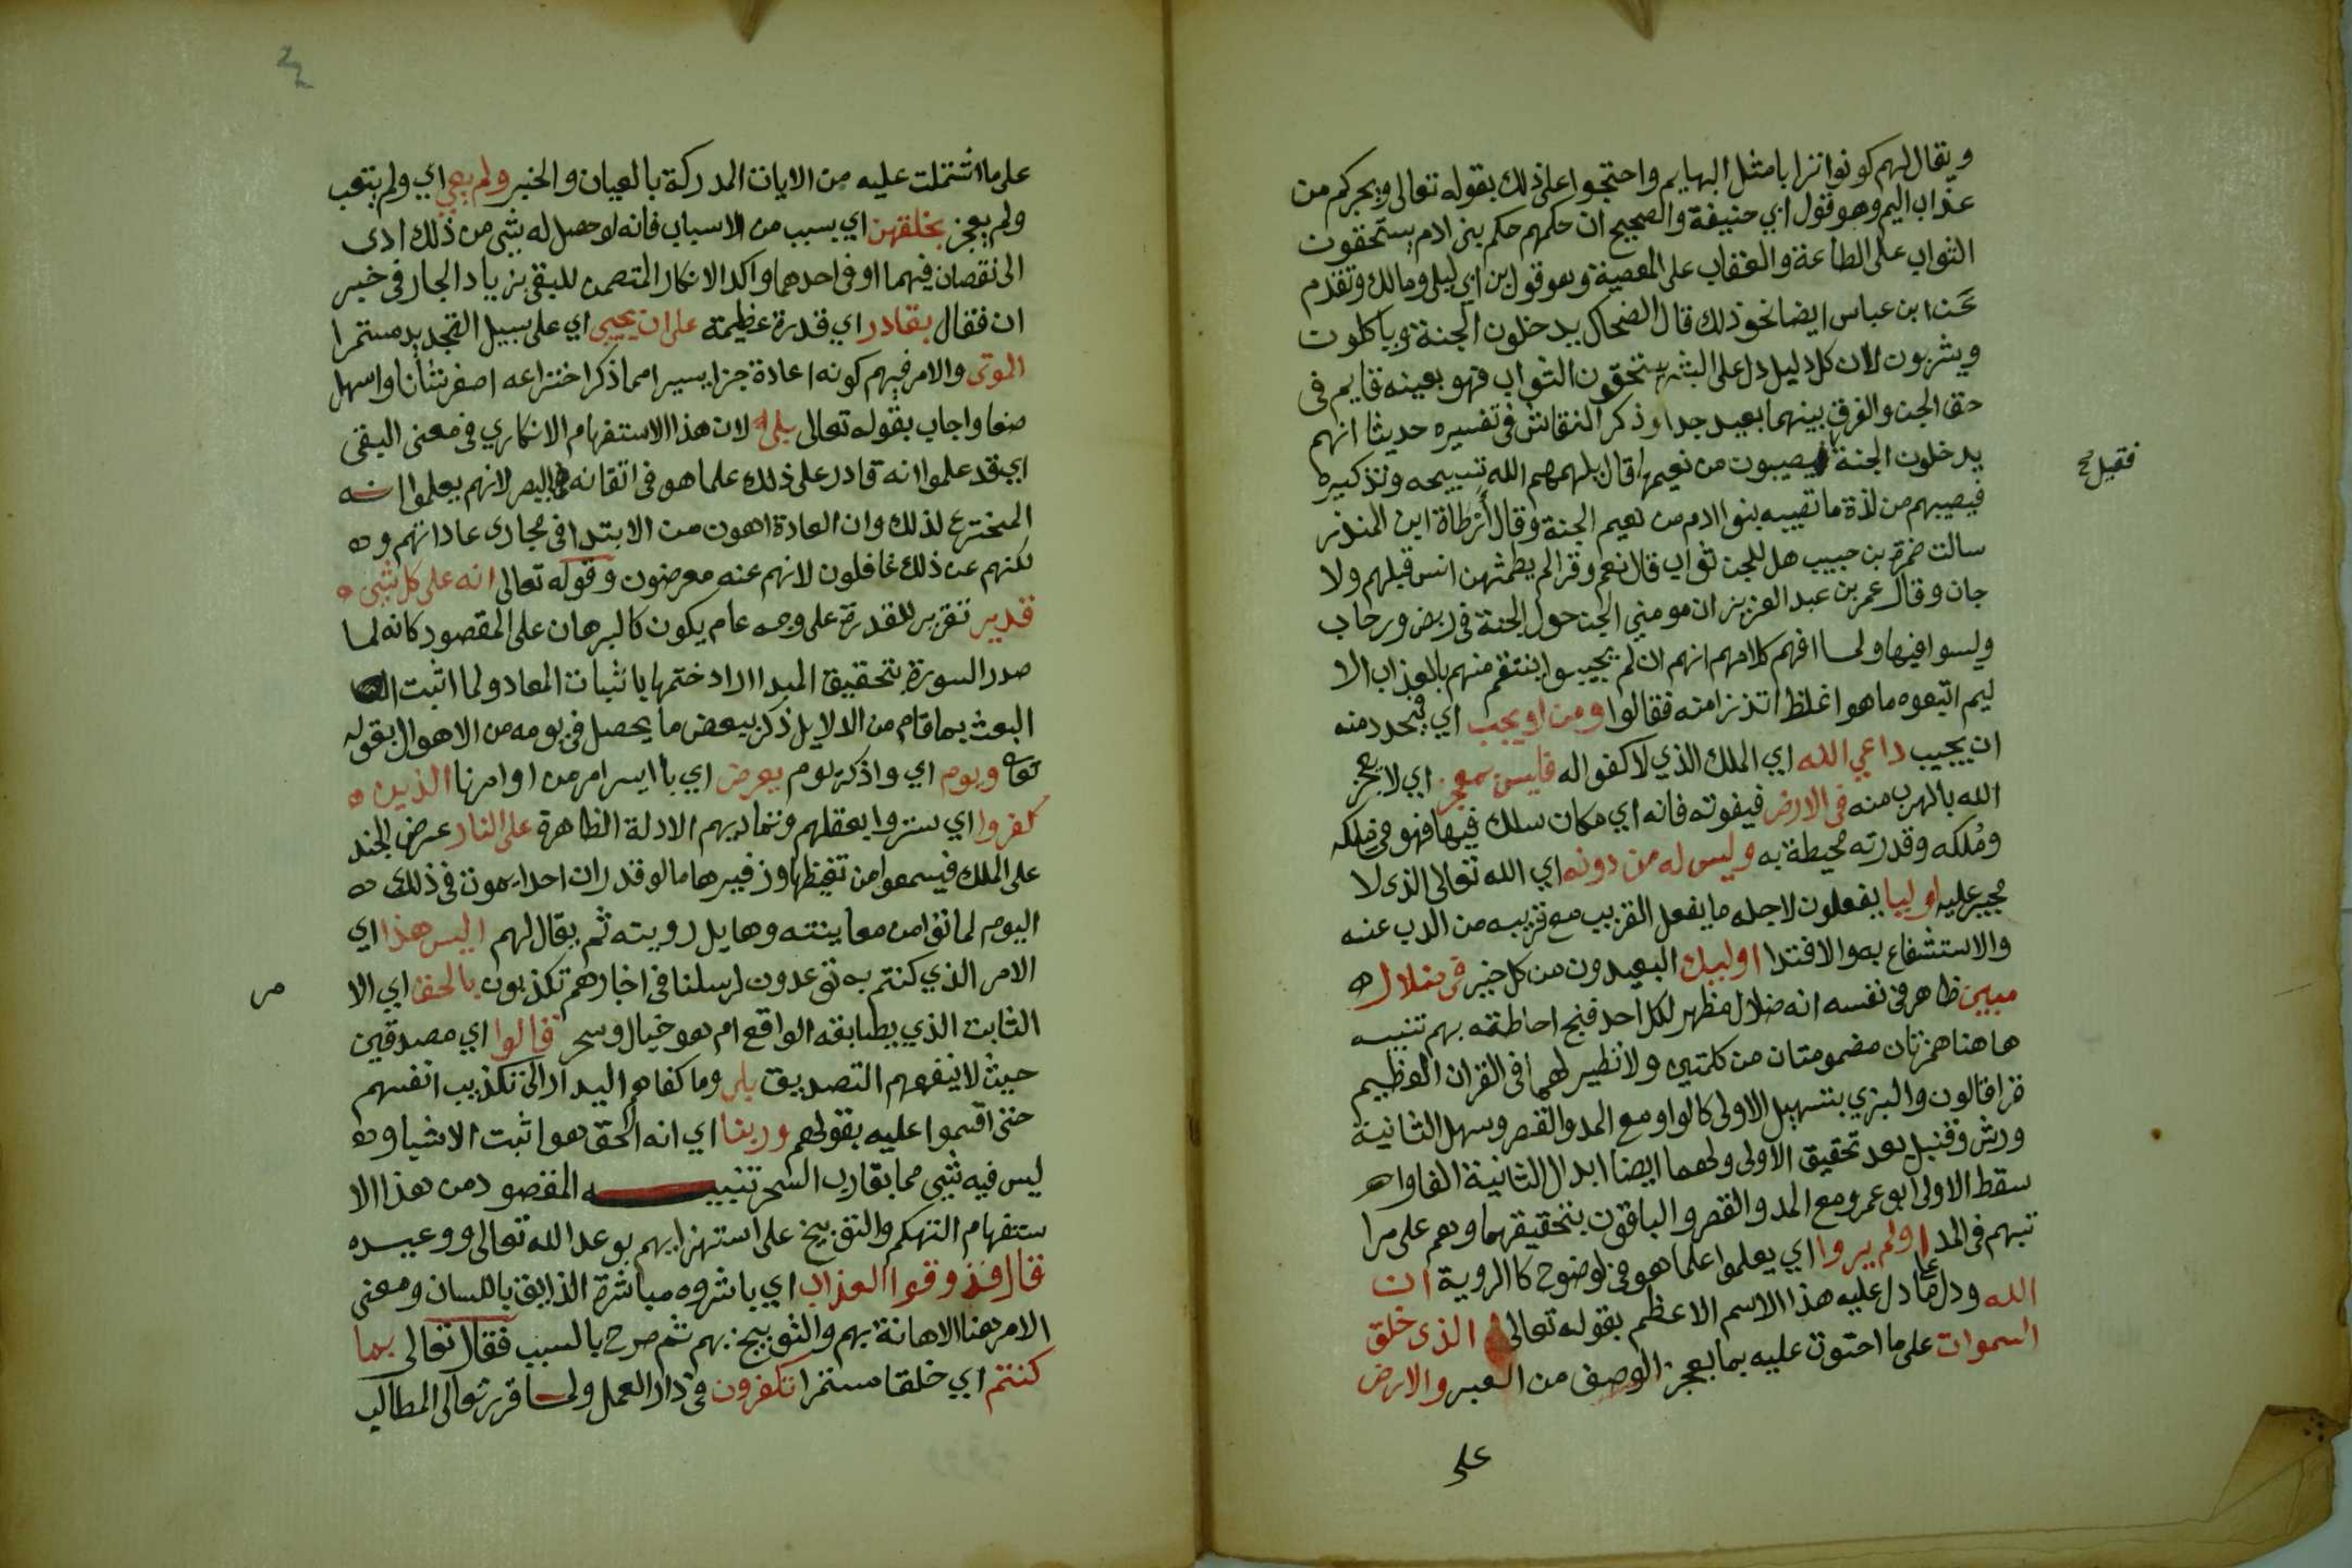 ويقال لهم كونوا ترابا مثل البهايم واحتجوا على ذلك بقوله تعالى ويجركم من
عذاب اليم وهو قول ابي حنيفة والصحيح ان حكمهم حكم بني ادم يستحقون
الثواب على الطاعة والعقاب على المعصية وهو قول بن ابي ليلى ومالك وتقدم
عن ابن عباس ايضا نحو ذلك قال الضحاك يدخلون الجنة وياكلون
ويشربون لان كل دليل دل على البشر يستحقون الثواب فهو بعينه قايم في
حق الجن والفرق بينهما بعيد جدا وذكر النقاش في تفسيره حديثا انهم
يدخلون الجنة فقيل يصيبون من نعيمها قال يلهمهم الله تسبيحه وتذكيره
فيصيبهم من لذة ما تصيبه بنوا ادم من نعيم الجنة وقال أرطاة ابن المنذر
سالت ضمرة بن حبيب هل للجن ثواب قال نعم وقرا لم يطمثهن انس قبلهم ولا
جان وقال عمر بن عبد العزيز ان مومني الجن حول الجنة في ربض ورحاب
وليسوا فيها ولما افهم كلامهم انهم ان لم يجيبوا ينتقم منهم بالعذاب الا
ليم اتبعوه ما هو اغلظ انذرا منه فقالوا ومن لا يجب اي يتجدد منه
ان يجيب داعي الله اي الملك الذي لا كفوا له فليس بمعجز اي لا يعجز
الله بالهرب منه في الارض فيفوته فانه اي مكان سلك فيها فهو في ملكه
ومُلكه وقدرته محيطة به وليس له من دونه اي الله تعالى الذي لا
مجير عليه اوليا يفعلون لاجله ما يفعل القريب مع قريبه من الذب عنه
والاستشفاع به والافتدا اوليك البعيدون من كل خير في ضلال
مبين ظاهر في نفسه انه ضلال مظهر لكل احد قبح احاطته بهم تنبيه
هاهنا همزتان مضمومتان من كلمتين ولا نظير لهما في القران العظيم
قرا قالون والبزي بتسهيل الاولى كالواو مع المد والقصر وسهل الثانية
ورش وقنبل بعد تحقيق الاولى ولهما ايضا ابدال الثانية الفا وا
سقط الاولى ابو عمرو مع المد والقصر والباقون بتحقيقهما وهم على مرا
تبهم في المد اولم يروا اي يعلموا علما هو في الوضوح كالروية ان
الله ودل على ما دل عليه هذا الاسم الاعظم بقوله تعالى الذي خلق
السموات على ما احتوت عليه بما يعجز الوصف من العبر والارض
على
على ما اشتملت عليه من الايات المدركة بالعيان والخبر ولم يعي اي ولم يتعب
ولم يعجز بخلقهن اي بسبب من الاسباب فانه لو حصل له شي من ذلك ادى
الى نقصان فيهما او في احدهما واكد الانكار المتضمن للنفي بزيادة الجار في خبر
ان فقال بقادر اي قدرة عظيمة على ان يحيي اي على سبيل التجديد مستمرا
الموتى والامر فيهم كونه اعادة جزا يسيرا مما ذكر اختراعه اصغر شانا واسهل
صنعا واجاب بقوله تعالى بلى لان هذا الاستفهام الانكاري في معنى النفي
اي قد علموا انه قادر على ذلك علما هو في اتقانه كالبصر لانهم يعلموا انه
المخترع لذلك وان العادة اهون من الابتدا في مجارى عاداتهم و
لكنهم عن ذلك غافلون لانهم عنه معرضون وقوله تعالى انه على كل شي
قدير تقرير للقدرة على وجه عام يكون كالبرهان على المقصود كانه لما
صدر السورة بتحقيق المبدا اراد ختمها باثبات المعاد ولما اثبت
البعث بما قام من الدلايل ذكر بيعض ما يحصل في يومه من الاهوال بقوله
تعالى ويوم اي واذكر يوم يعرض اي بايسر امر من اوامرنا الذين
كفروا اي ستروا بعقلهم وتماديهم الادلة الظاهرة على النار عرض الجند
على الملك فيسمعوا من تغيظها وزفيرها ما لو قدر ان احدا يموت في ذلك
اليوم لماتوا من معاينته وهايل رويته ثم يقال لهم اليس هذا اي
الامر الذي كنتم به توعدون لرسلنا في اخبارهم تكذبون بالحق اي الا مر
الثابت الذي يطابقه الواقع ام هو خيال وسحر قالوا اي مصدقين
حيث لا ينفعهم التصديق بلى وما كفاهم البدار الى تكذيب انفسهم
حتى اقسموا عليه بقولهم وربنا اي انه الحق هو اثبت الاشيا و
ليس فيه شي مما يقارب السحر تنبيه المقصود من هذا الا
ستفهام التهكم والتوبيخ على استهزايهم بوعد الله تعالى ووعيده
قال فذوقوا العذاب اي باشروه مباشرة الذايق باللسان ومعنى
الامر هنا الاهانة بهم والتوبيخ بهم ثم صرح بالسبب فقال تعالى بما
كنتم اي خلقا مستمرا تكفرون في دار العمل ولما قرر تعالى المطالب